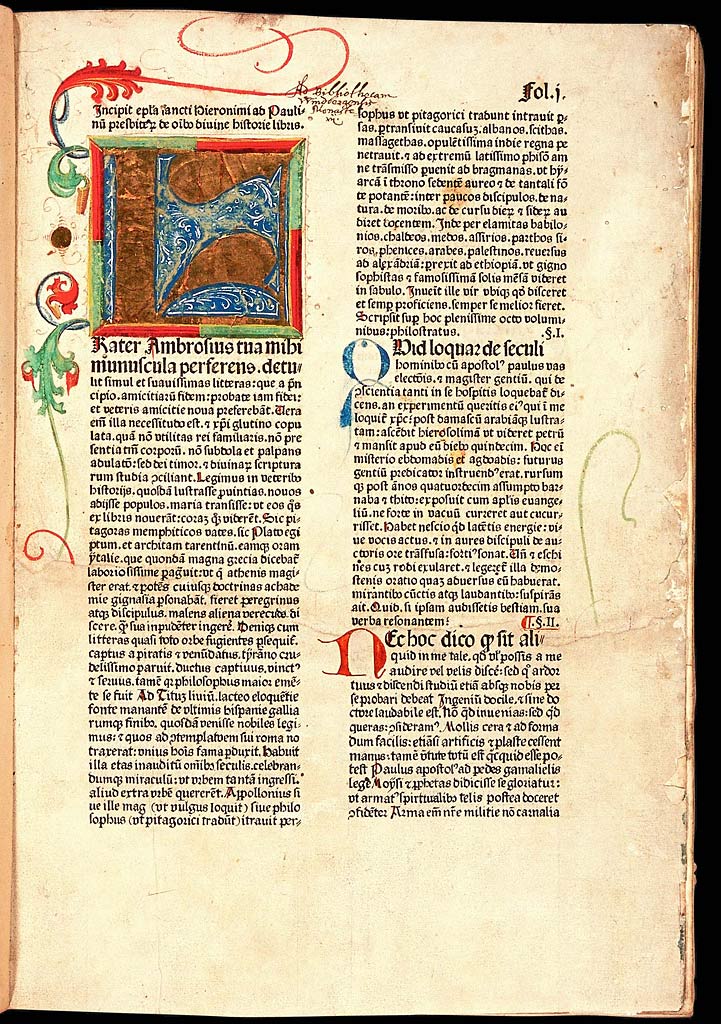 Ad Bibliothecam
Fol. j.
Incipit epl̃a sancti Hieronimi ad Pauli-
nũ presbiteꝝ de oĩbꝰ diuine historie libris.
F
Rater Ambrosius tua mihi
munuscula perferens. detu-
lit simul et suauissimas litteras: que a p̃n
cipio. amicitiaꝝ fidem: probate iam fidei:
et veteris amicitie noua preferebãt. Uera
eñ illa necessitudo est. ⁊ xp̃i glutino copu
lata. quã nõ vtilitas rei familiaris. nõ pre
sentia tm̃ corporũ. nõ subdola et palpans
adulatõ: sed dei timor. ⁊ diuinaꝝ scriptura
rum studia ꝯciliant. Legimus in veteribꝰ
historijs. quosdã lustrasse ꝓuintias. nouos
adijsse populos. maria transisse: vt eos q̃s
ex libris nouerãt: coraꝫ qꝫ viderẽt. Sic pi-
tagoras memphiticos vates. sic Plato egi
ptum. et architam tarentinũ. eamqꝫ oram
ytalie. que quondã magna grecia dicebat̃
laboriosissime ꝑagrauit: vt q̃ athenis magi-
ster erat. ⁊ potẽs. cuiusqꝫ doctrinas achade
mie gignasia ꝑsonabãt. fieret peregrinus
atqꝫ discipulus. malens aliena verecũde di
scere. q̃ꝫ sua inpudẽter ingerẽ. Deniqꝫ cum
litteras quasi toto orbe fugientes ꝑsequit̃.
captus a piratis ⁊ venũdatus. tyrãno cru-
delissimo paruit. ductus captiuus. vinctꝰ
⁊ seruus. tamẽ qꝫ philosophus maior emẽ-
te se fuit Ad Tituꝫ liuiũ. lacteo eloquẽtie
fonte manantẽ de vltimis hispanie gallia
rumqꝫ finibꝰ. quosdã venisse nobiles legi-
mus: ⁊ quos ad ꝯtemplatoẽm sui roma no
traxerat: vnius hoĩs fama ꝑduxit. Habuit
illa etas inauditũ oĩnibꝰ seculis. celebran-
dumqꝫ miraculũ: vt vrbem tantã ingressi.
aliud extra vrbẽ quererẽt. Appollonius si
ue ille magꝰ (vt vulgus loquit̃) siue philo
sophus (vt pitagorici tradũt) itrauit per-
sophus vt pitagorici tradunt intrauit ꝑ-
sas. ꝑtransiuit caucasuꝫ. albanos. scithas.
massagethas. opulẽtissima indie regna pe
netrauit. ⁊ ad extremũ latissimo phisõ am
ne trãsmisso ꝑuenit ad bragmanas. vt hy-
arcã ĩ throno sedentẽ aureo ⁊ de tantali fõ
te potantẽ: inter paucos discipulos. de na-
tura. de moribꝰ. ac de cursu dieꝝ ⁊ sideꝝ au
diret docentem. Inde per elamitas babilo-
nios. chaldeos. medos. assirios. parthos si-
ros. phenices. arabes. palestinos. reuersus
ad alexãdriã: ꝑrexit ad ethiopiã. vt gigno
sophistas ⁊ famosissimã solis mẽsã videret
in sabulo. Inueĩt ille vir vbiqꝫ qd̃ disceret
et semꝑ proficiens. semper se melior fieret.
Scripsit suꝑ hoc plenissime octo volumi-
nibus: philostratus. .§.I.
QUid loquar de seculi
hominibꝰ cũ apostolꝰ paulus vas
electõis. ⁊ magister gentiũ. qui de
ꝯscientia tanti in se hospitis loquebat̃ di-
cens. an experimentũ queritis eiꝰ qui ĩ me
loquit̃ xp̃c: post damascũ arabiãqꝫ lustra-
tam: ascẽdit hierosolimã vt videret petrũ
⁊ mansit apud eũ diebꝰ quindecim. Hoc eñ
misterio ebdomadis ⁊ ogdoadis: futurus
gentiũ predicator instruendꝰ erat. rursum
qꝫ post ãnos quatuordecim assumpto bar-
naba ⁊ thito: exposuit cum aplĩs euange-
liũ. ne forte in vacuũ curreret aut cucur-
risset. Habet nescio qd̃ latẽtis energie: vi-
ue vocis actus. ⁊ in aures discipuli de au-
ctoris ore trãsfusa: fortiꝰ sonat. Uñ ⁊ eschi
nes cuꝫ rodi exularet. ⁊ legeret̃ illa demo-
stenis oratio quaꝫ aduersus eũ habuerat.
mirantibꝰ cũctis atqꝫ laudantibꝰ: suspirãs
ait. Quid. si ipsam audissetis bestiam. sua
verba resonantem: .§.II.
NEc hoc dico qꝫ sit ali-
quid in me tale. qd̃ vl̃ possis a me
audire vel velis discẽ: sed qꝫ ardor
tuus ⁊ discendi studiũ etiã absqꝫ nobis per
se probari debeat Ingeniũ docile. ⁊ sine do
ctore laudabile est. Nõ qd̃ inuenias: sed qd̃
queras: ꝯsideramꝰ. Mollis cera ⁊ ad forma
dum facilis: etiãsi artificis ⁊ plaste cessent
manus: tamẽ v̾tute totũ est qcquid esse po-
test Paulus apostolꝰ ad pedes gamalielis
legẽ Moysi ⁊ ꝓphetas didicisse se gloriatur:
vt armatꝰ spiritualibꝰ telis postea doceret
ꝯfidẽter Arma eñ nr̃e militie nõ carnalia